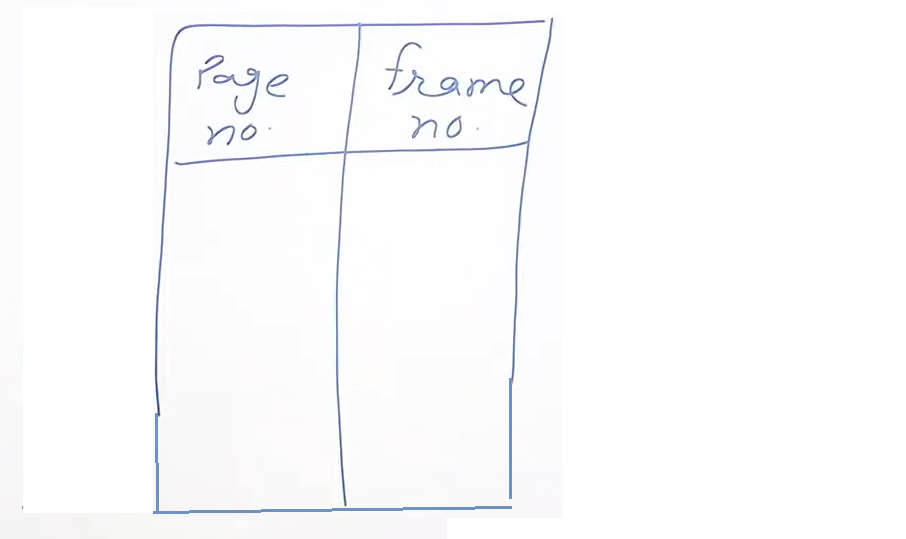 Page
no.
frame
no.